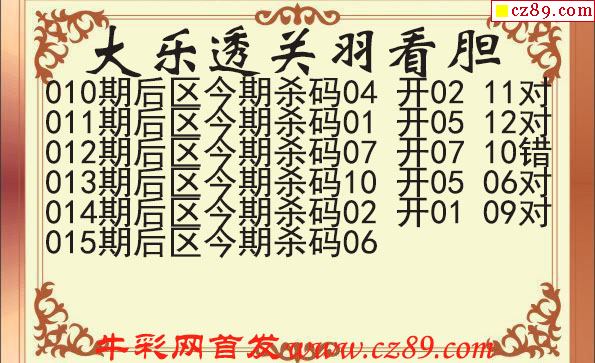 cz89.com
大乐透关羽看胆
010期后区今期杀码04 开02 11对
011期后区今期杀码01 开05 12对
012期后区今期杀码07 开07 10错
013期后区今期杀码10 开05 06对
014期后区今期杀码02 开01 09对
015期后区今期杀码06
牛彩网首发www.cz89.com